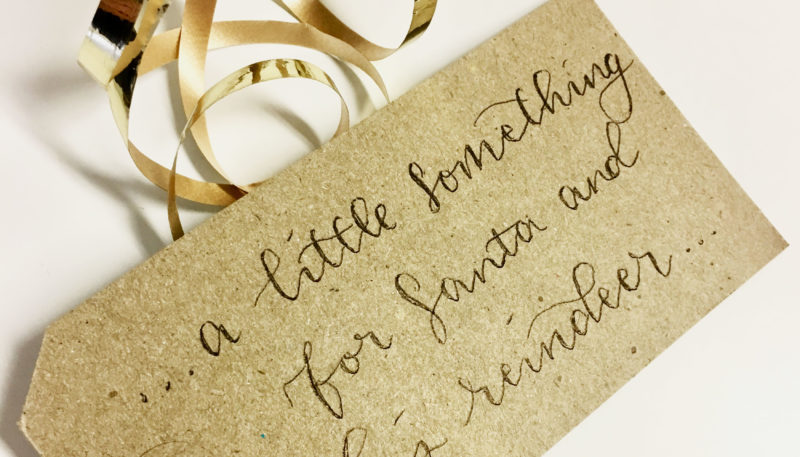 ...a little something
for Santa and
his reindeer...